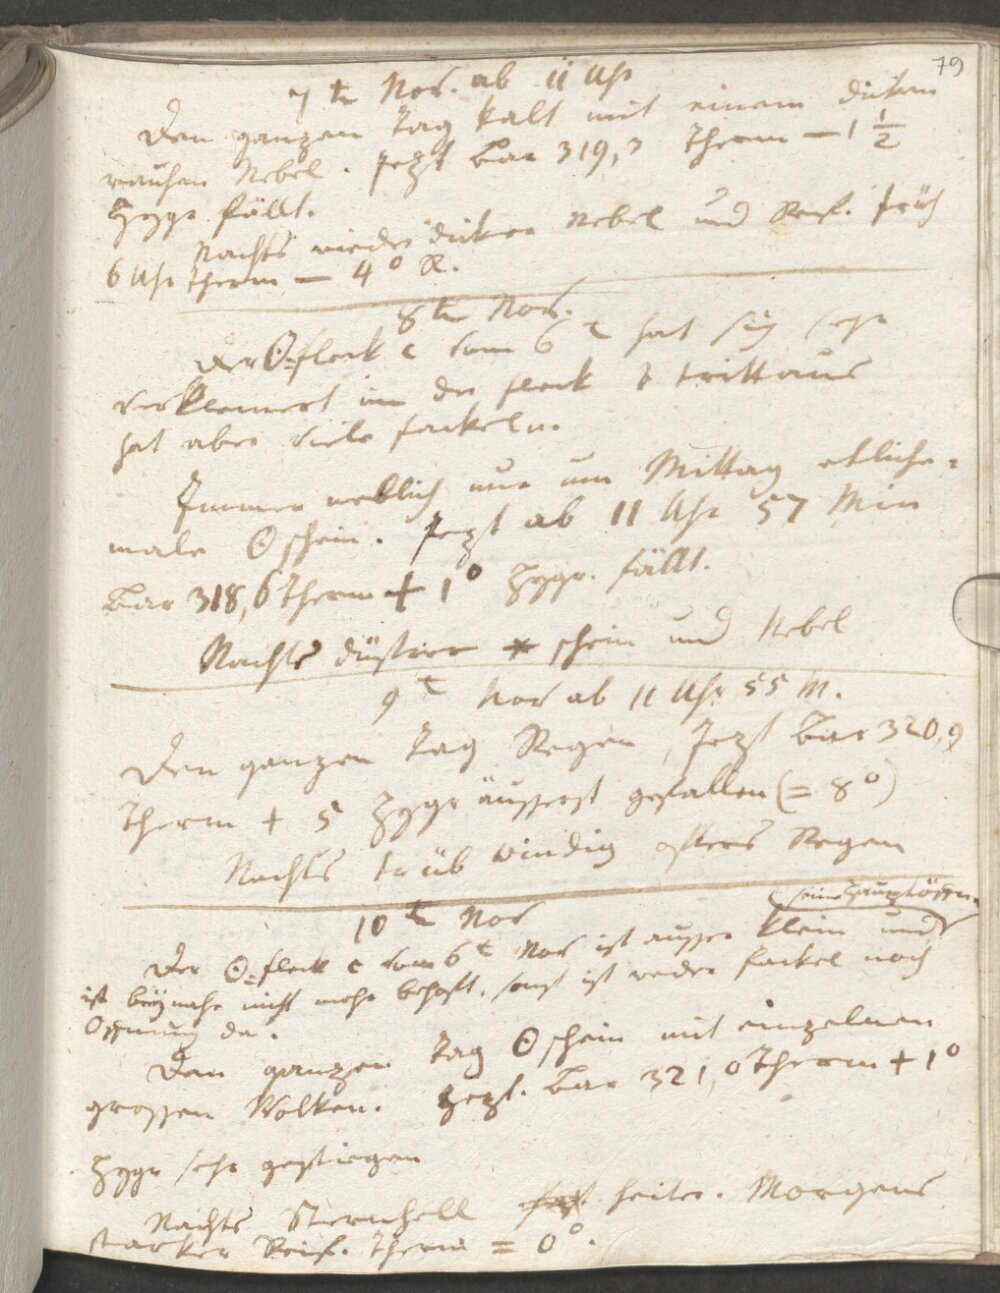 79
7te Nov. ab 11 Uhr
Den ganzen Tag kalt mit einem dicken
rauhen Nebel. Jezt Bar 319,3 Therm — 1 1/2
Hygr fällt.
Nachts wieder dicker Nebel und Reif. Früh
6 Uhr Therm — 4° R.
8te Nov.
Der ⊙=fleck c vom 6t hat sich sehr
verkleinert in der fleck b tritt aus
hat aber viele fackeln.
Immer neblich nur um Mittag etliche=
male ⊙schein. Jezt ab 11 Uhr 57 Min
Bar 318,6 Therm + 1° Hygr. fällt.
Nachts düstrer * schein und Nebel
9t Nov ab 11 Uhr 55 M.
Den ganzen Tag Regen, Jezt Bar 320,9
Therm + 5 Hygr äusserst gefallen (= 8°)
Nachts trüb windig öfters Regen
10te Nov
seine Hauptöffn.
Der ⊙=fleck c vom 6t Nov ist ausser klein und
ist beynahe nicht mehr behoft. sonst ist weder fackel noch
Offnung da.
Den ganzen Tag ⊙schein mit einzelnen
grossen Wolken. Jezt. Bar 321,0 Therm + 1°
Hygr sehr gestiegen
Nachts Sternhell heiter. Morgens
starker Reif. Therm = 0°.